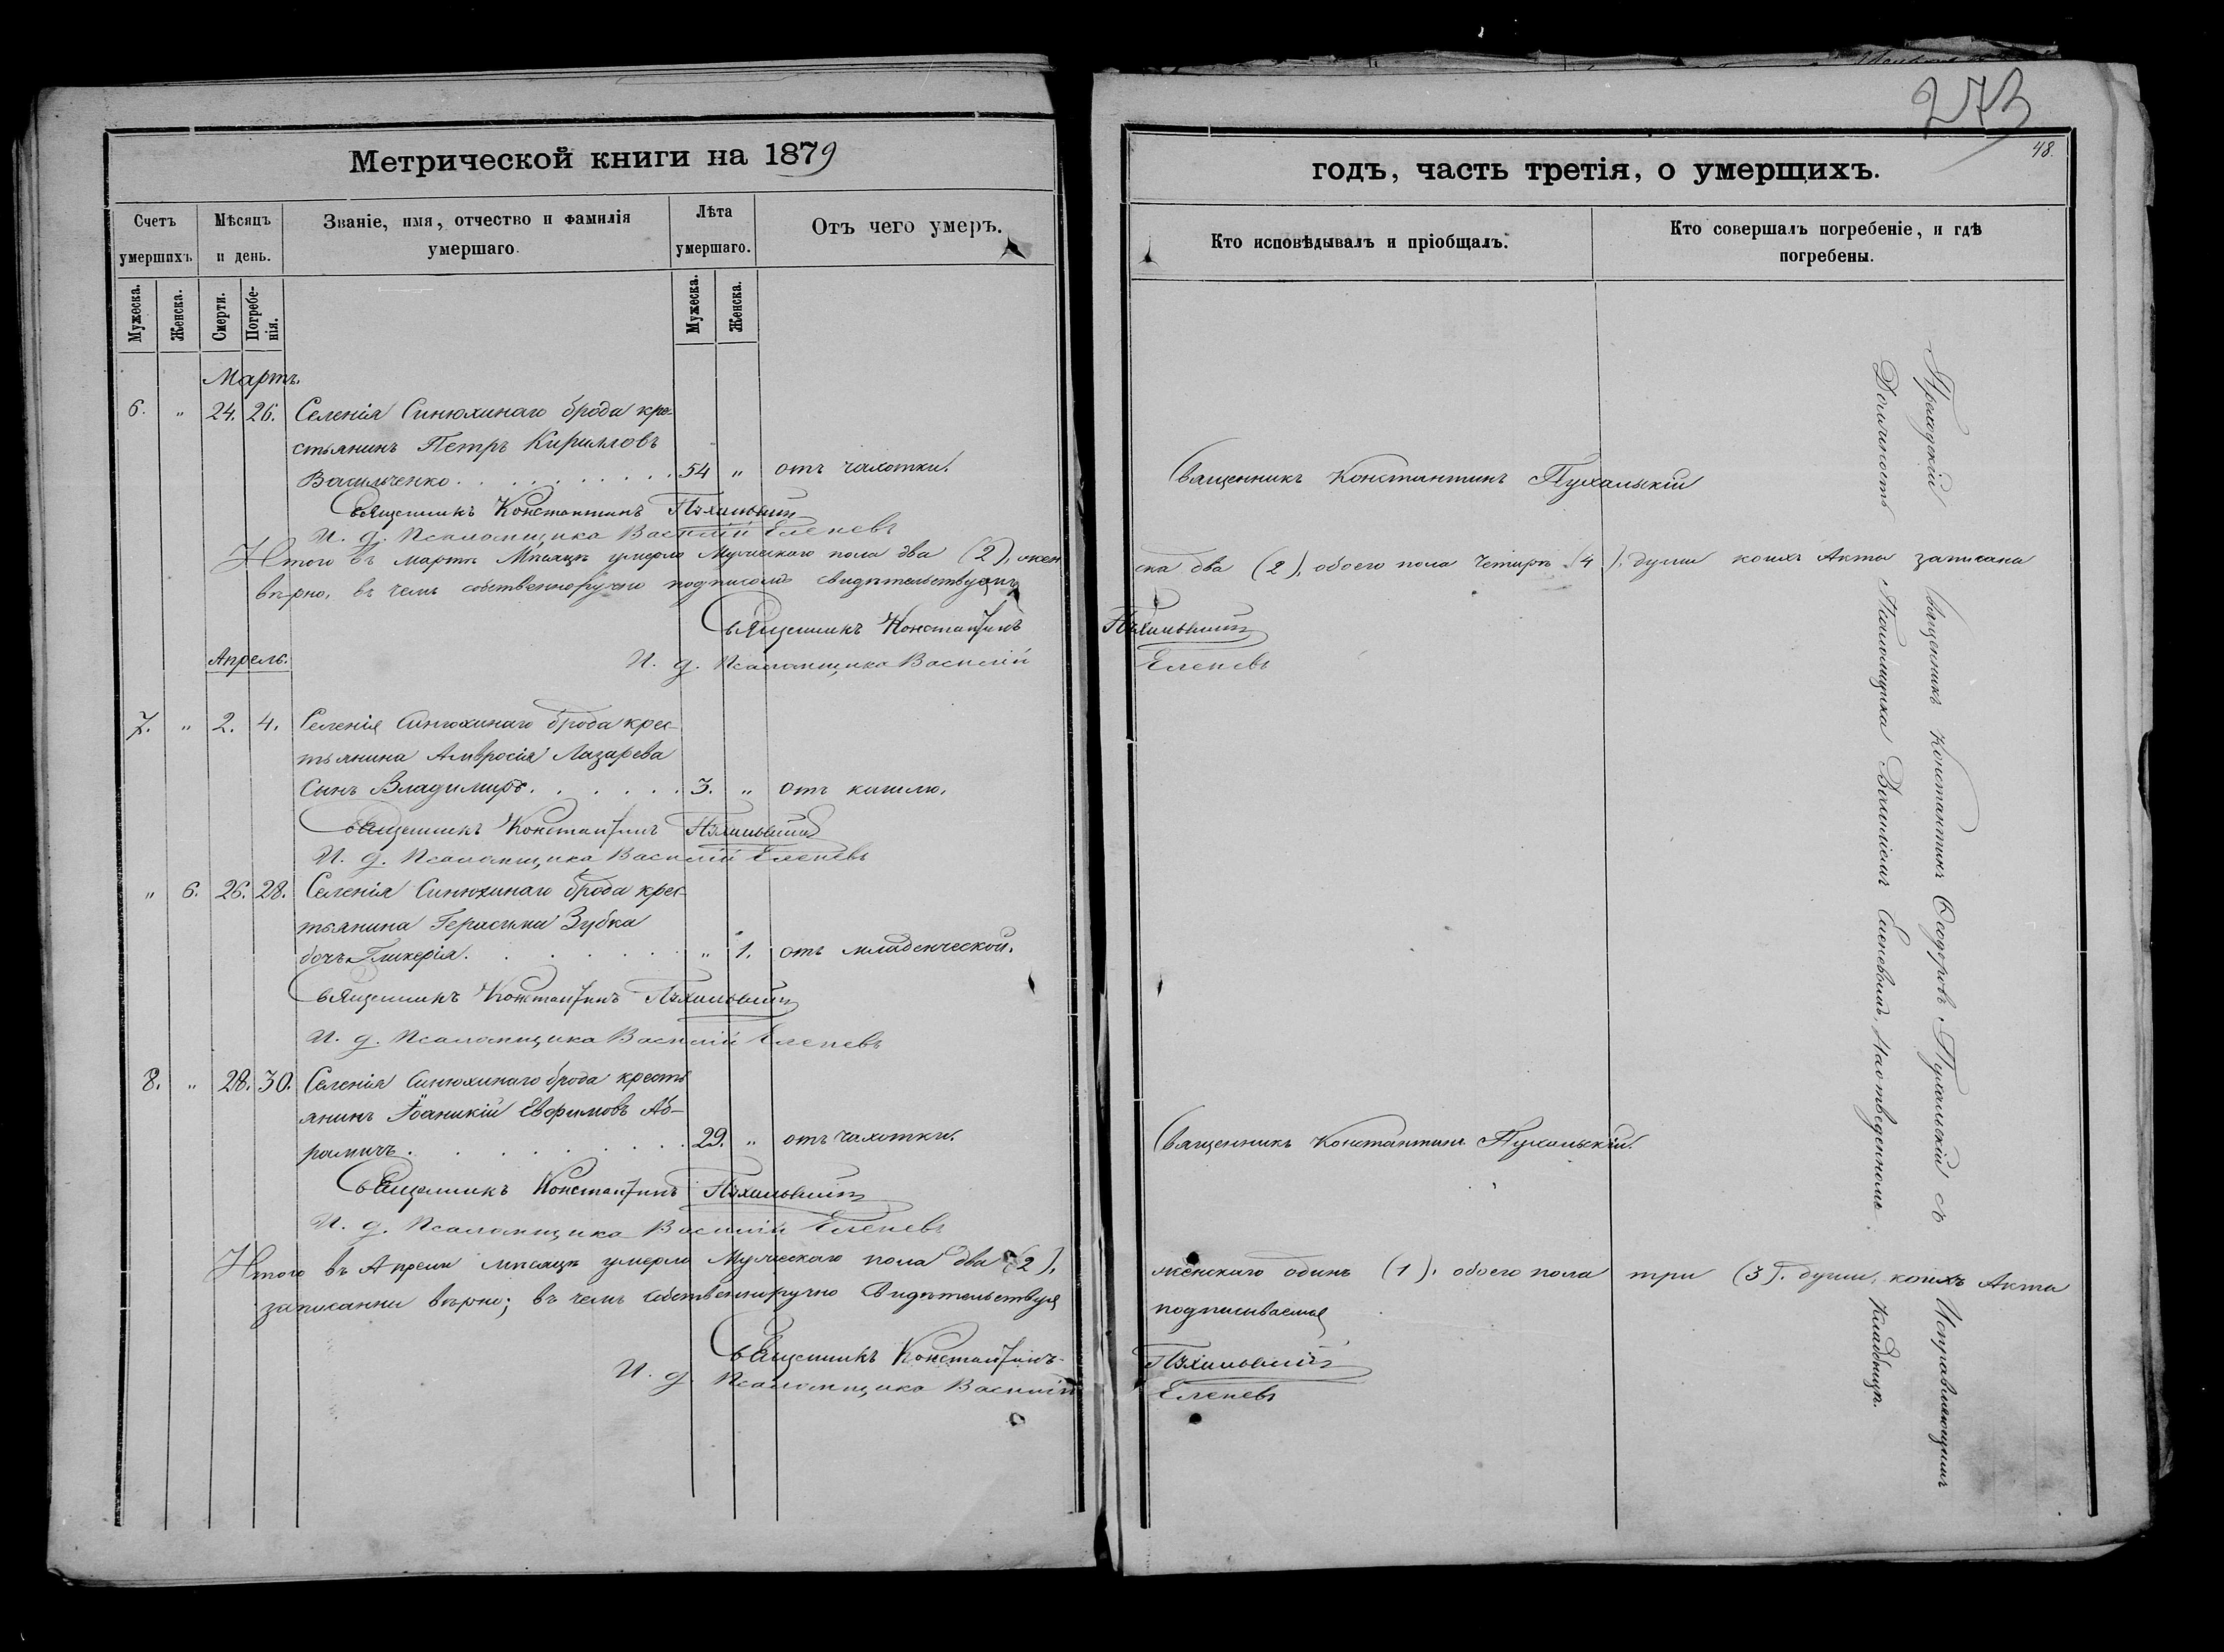 273
48.
Метрической книги на 1879
годъ, часть третія, о умершихъ.
Счетъ умершихъ
Мѣсяцъ и день.
Званіе, имя, отчество и фамилія умершаго.
Лѣта умершаго.
Отъ чего умеръ.
Кто исповѣдывалъ и пріобщалъ.
Кто совершалъ погребеніе, и гдѣ погребены.
Мужеска.
Женска.
Смерти.
Погребенія.
Мужеска.
Женска.
Мартъ.
6. " 24. 26. Селенія Синюхинаго брода кре-
стьянинъ Петръ Кирилловъ
Васильченко 54 " отъ чахотки.
Священникъ Константинъ Пухальскій
Священникъ Константинъ Пухальскій
И. д. Псаломщика Василій Еленевъ
Итого въ мартѣ Мѣсяцѣ умерло Мужескаго пола два (2), жен
ска два (2), обоего пола четыре (4). души коихъ Акты записана
вѣрно, въ чемъ собственноручно подписомъ свидѣтельствуемъ
Священникъ Константинъ Пухальскій
И. д. Псаломщика Василій Еленевъ
Апрель.
7. " 2. 4. Селенія Синюхинаго брода крес-
тьянина Амвросія Лазарева
Сынъ Владимиръ. 3. " отъ кашлю.
Священникъ Константинъ Пухальскій
И. д. Псаломщика Василій Еленевъ
" 6. 26. 28. Селенія Синюхинаго брода крес-
тьянина Герасима Зубка
дочь Гликерія. " 1. отъ младенческой.
Священникъ Константинъ Пухальскій
И. д. Псаломщика Василій Еленевъ
8. " 28. 30. Селенія Синюхинаго брода кресть
янинъ Іоаникій Евфимовъ Аб-
рамичъ. 29. " отъ чахотки.
Священникъ Константинъ Пухальскій.
Священникъ Константинъ Пухальскій
И. д. Псаломщика Василій Еленевъ
Итого въ Апрели мѣсяцѣ умерло Мужескаго пола два (2),
женскаго одинъ (1). обоего пола три (3). души, коихъ Акты
записанны вѣрно; въ чемъ собственноручно Свидѣтельствуя
подписываемся
Священникъ Константинъ Пухальскій
И. д. Псаломщика Василій Еленевъ
Приходскій Священникъ Константинъ Ѳеодоровъ Пухальскій съ Исправляющимъ
Должность Псаломщика Василіемъ Еленевымъ, На отведенномъ Кладбищѣ.